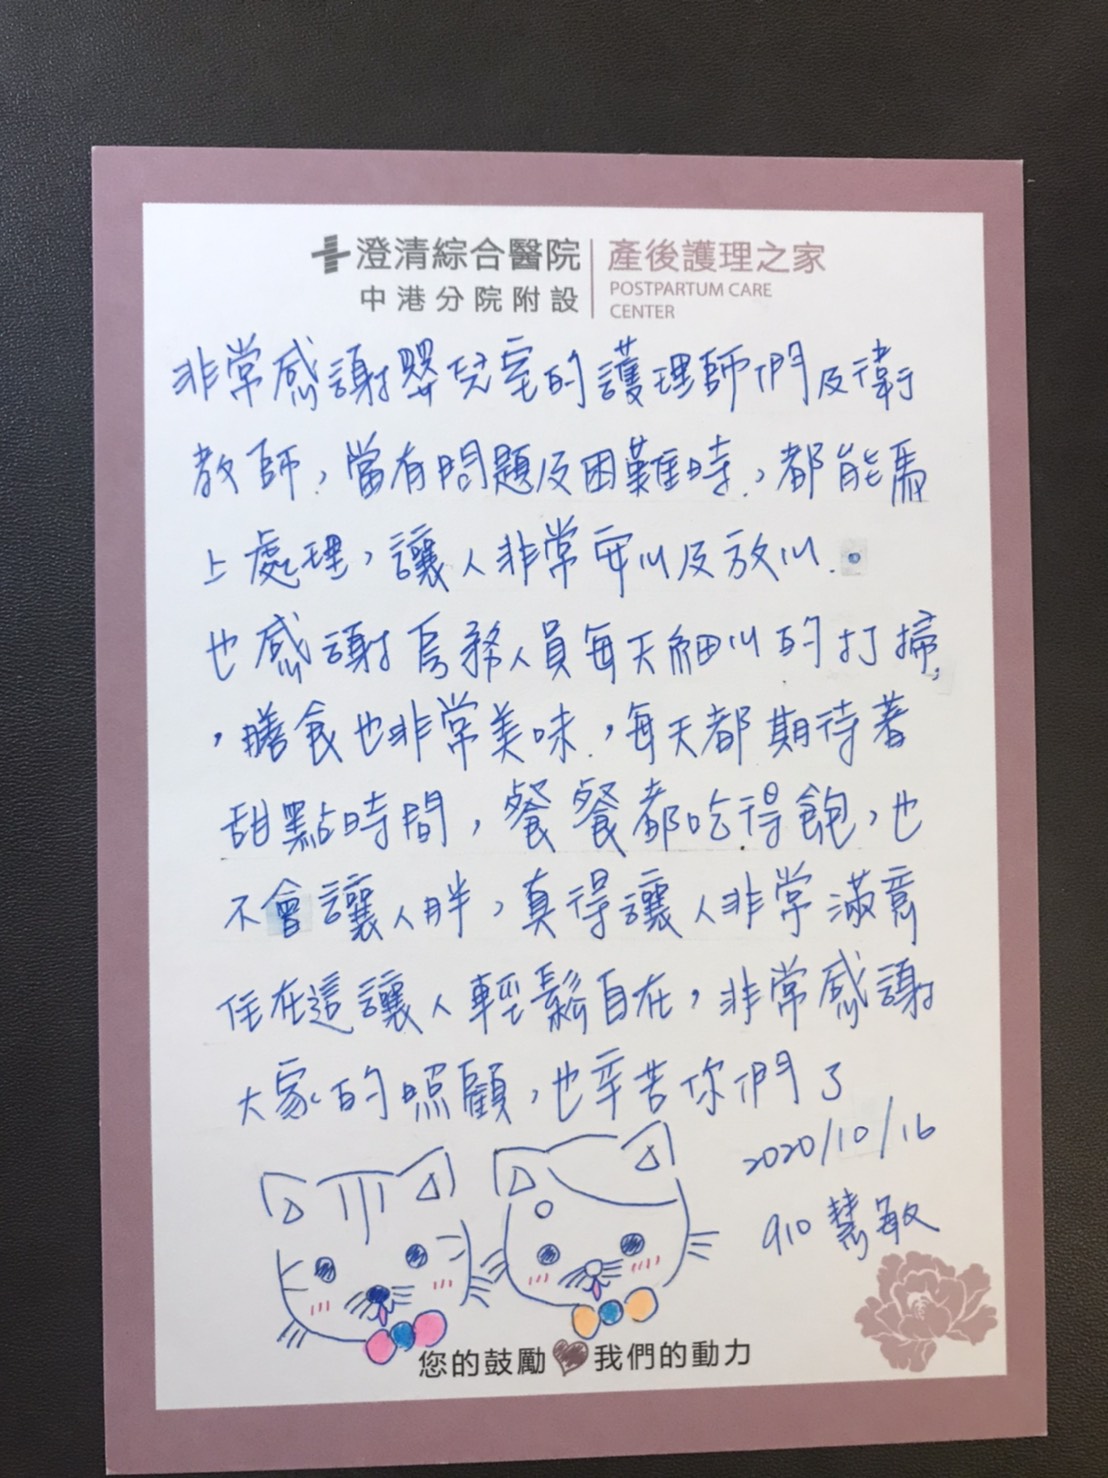 澄清綜合醫院
中港分院附設
產後護理之家
POSTPARTUM CARE
CENTER
非常感謝嬰兒室的護理師們及衛
教師，當有問題及困難時，都能馬
上處理，讓人非常安心及放心。
也感謝房務人員每天細心的打掃
，膳食也非常美味，每天都期待著
甜點時間，餐餐都吃得飽，也
不會讓人胖，真得讓人非常滿意
住在這讓人輕鬆自在，非常感謝
大家的照顧，也辛苦你們了
2020/10/16
910 慧敏
您的鼓勵 我們的動力